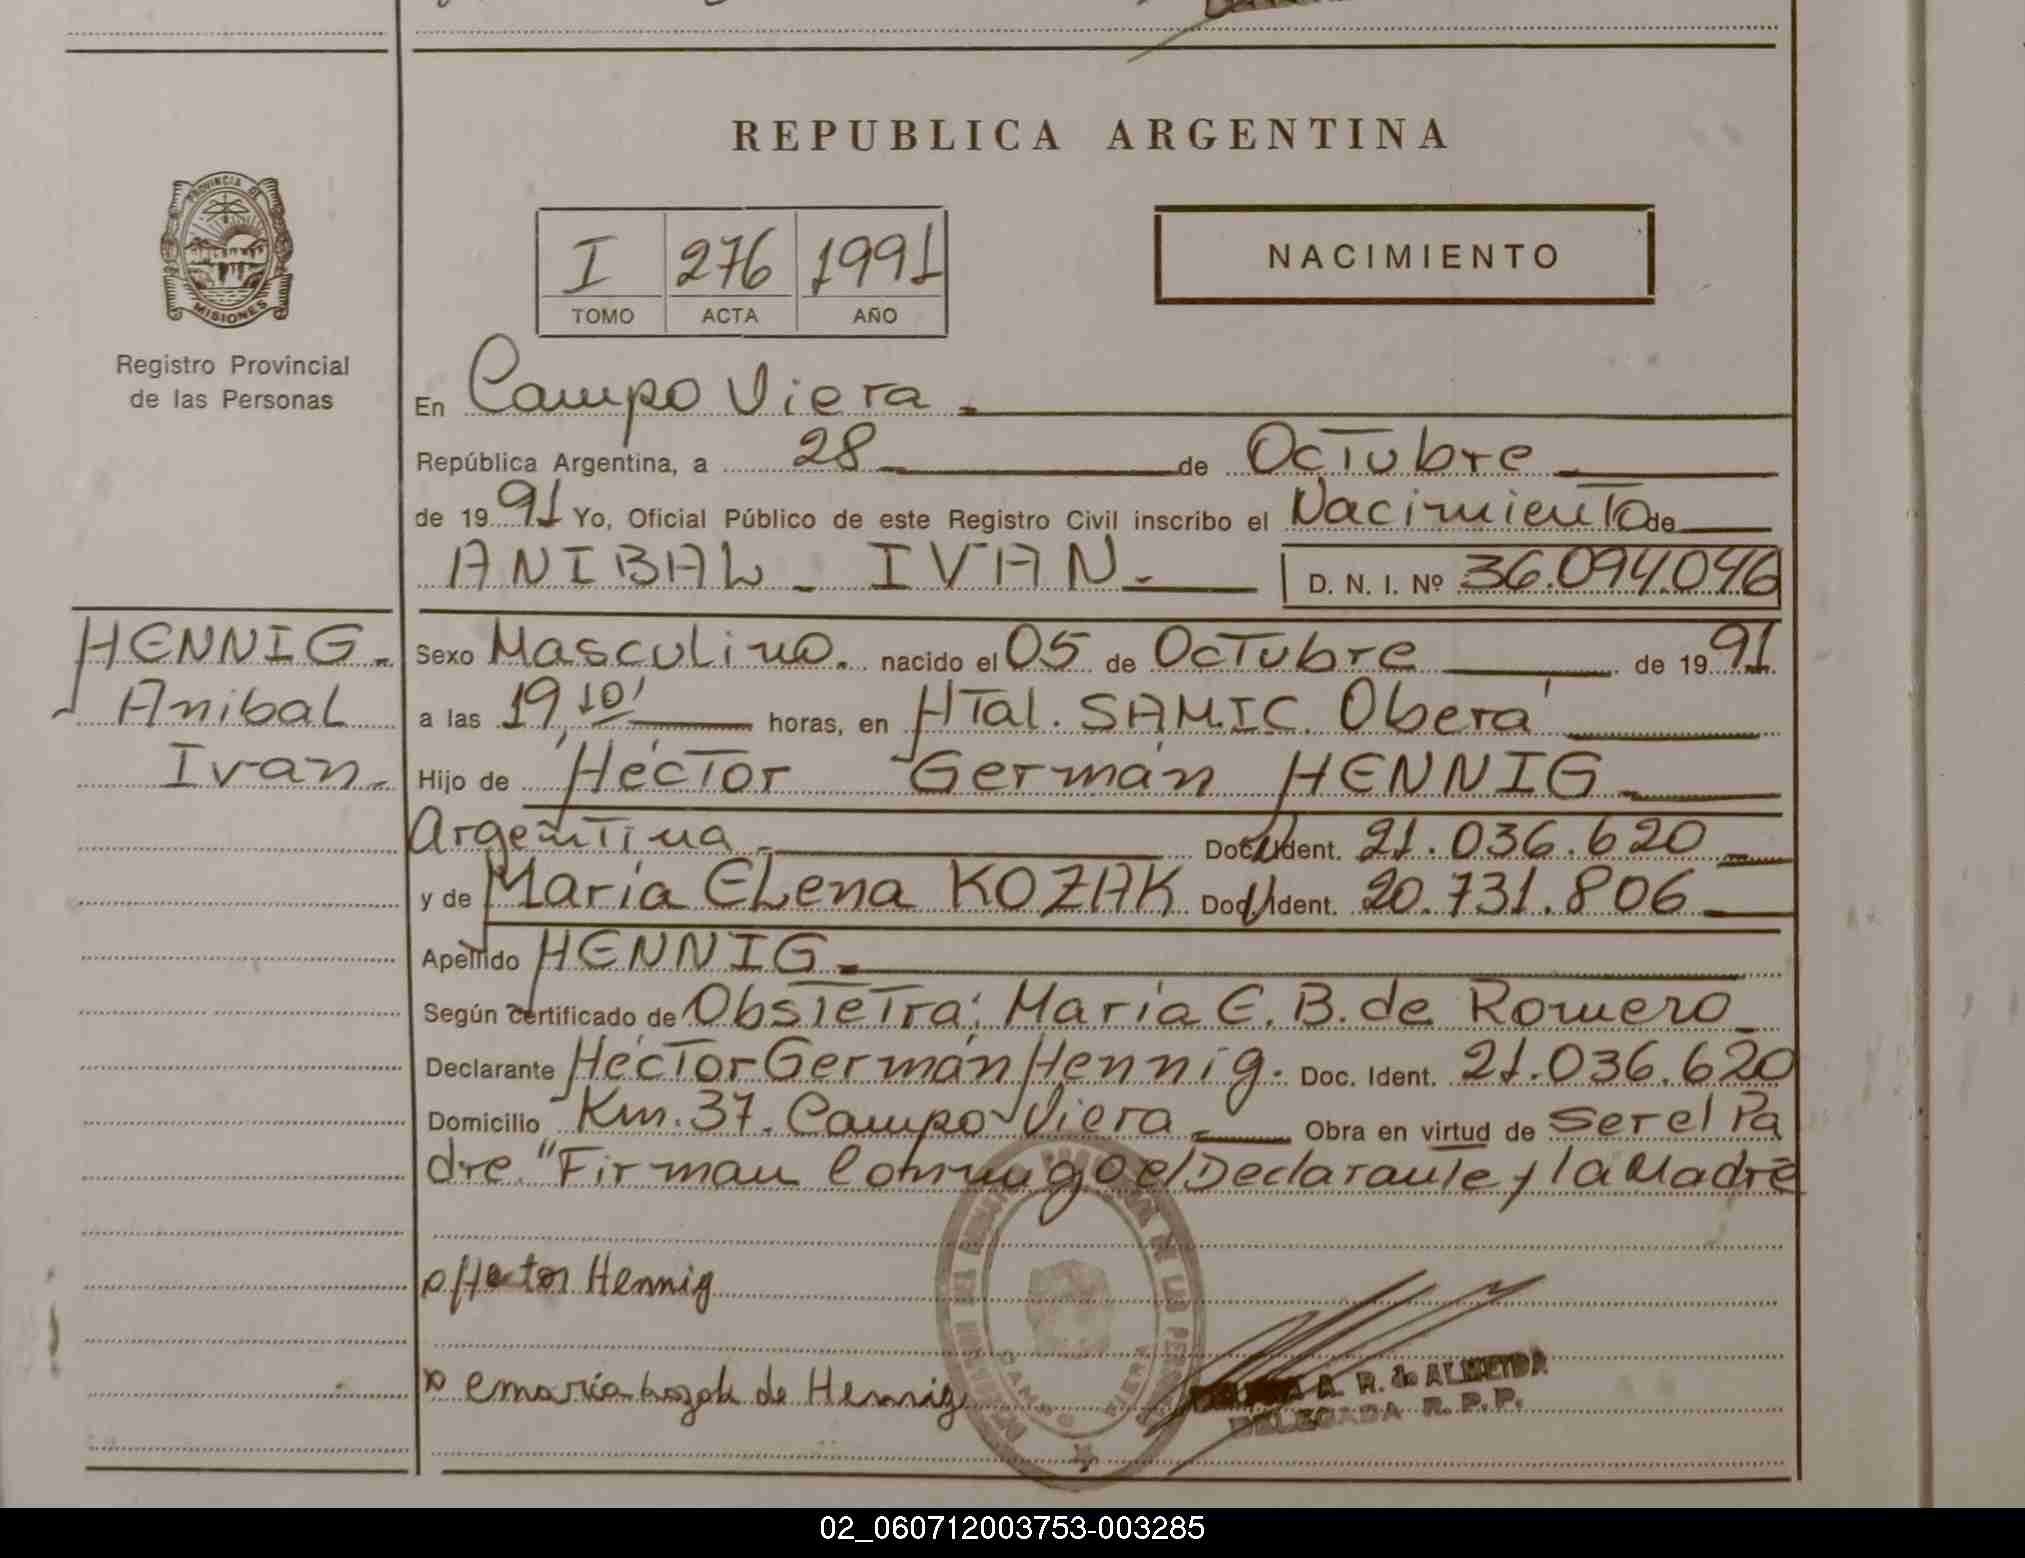 REPUBLICA ARGENTINA
PROVINCIA DE
MISIONES
Registro Provincial
de las Personas
I 276 1991
TOMO ACTA AÑO
NACIMIENTO
En Campo Viera
República Argentina, a 28 de Octubre
de 1991 Yo, Oficial Público de este Registro Civil inscribo el Nacimiento de
ANIBAL - IVAN.- D. N. I. Nº 36.094.046
HENNIG.
Anibal
Ivan.
Sexo Masculino. nacido el 05 de Octubre de 1991.
a las 19,10' horas, en HTal. SAMIC. Oberá
Hijo de Héctor Germán HENNIG
Argentina Doc. Ident. 21.036.620
y de María Elena KOZAK Doc. Ident. 20.731.806
Apellido HENNIG
Según certificado de Obstetra: María E. B. de Romero
Declarante Héctor Germán Hennig. Doc. Ident. 21.036.620
Domicilio Km. 37. Campo Viera Obra en virtud de ser el Pa
dre. "Firman conmigo el Declarante y la Madre
Hector Hennig
maría kozak de Hennig
CAMPO VIERA
A. R. de ALMEIDA
DELEGADA R. P. P.
02_060712003753-003285